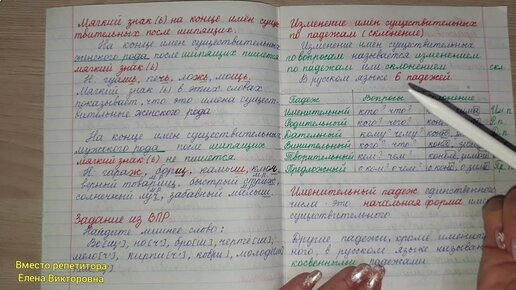 Мягкий знак (ь) на конце имён сущес
твительных после шипящих.
На конце имён существительных
женского рода после шипящих пишется
мягкий знак (ь)
Н. гуашь, печь, ложь, мощь.
Мягкий знак (ь) в этих словах
показывает, что это имена сущест-
вительные женского рода.
На конце имён существительных
мужского рода после шипящих
мягкий знак (ь) не пишется.
Н. гараж, борщ, камыш, ключ,
товарищ, быстрый стриж,
солнечный луч, забавный малыш.
Задание из ВПР
Найдите лишнее слово:
Ве[щ'], но[ч'], бро[ш], черте[ш],
мело[ч'], кирпи[ч'], ковш
Вместо репетитора
Елена Викторовна
Изменение имён существительных
по падежам (склонение)
Изменение имён существительных
по вопросам называется изменением
по падежам или склонением
скл.
В русском языке 6 падежей.
Падеж Вопросы
Именительный кто? что? Им.п.
Родительный кого? чего?
Дательный кому? чему?
Винительный кого? что?
Творительный кем? чем?
Предложный о ком? о чём?
Именительный падеж единственного
числа - это начальная форма имени
существительного
Другие падежи, кроме именитель
ного, в русском языке называю
косвенными падежами.